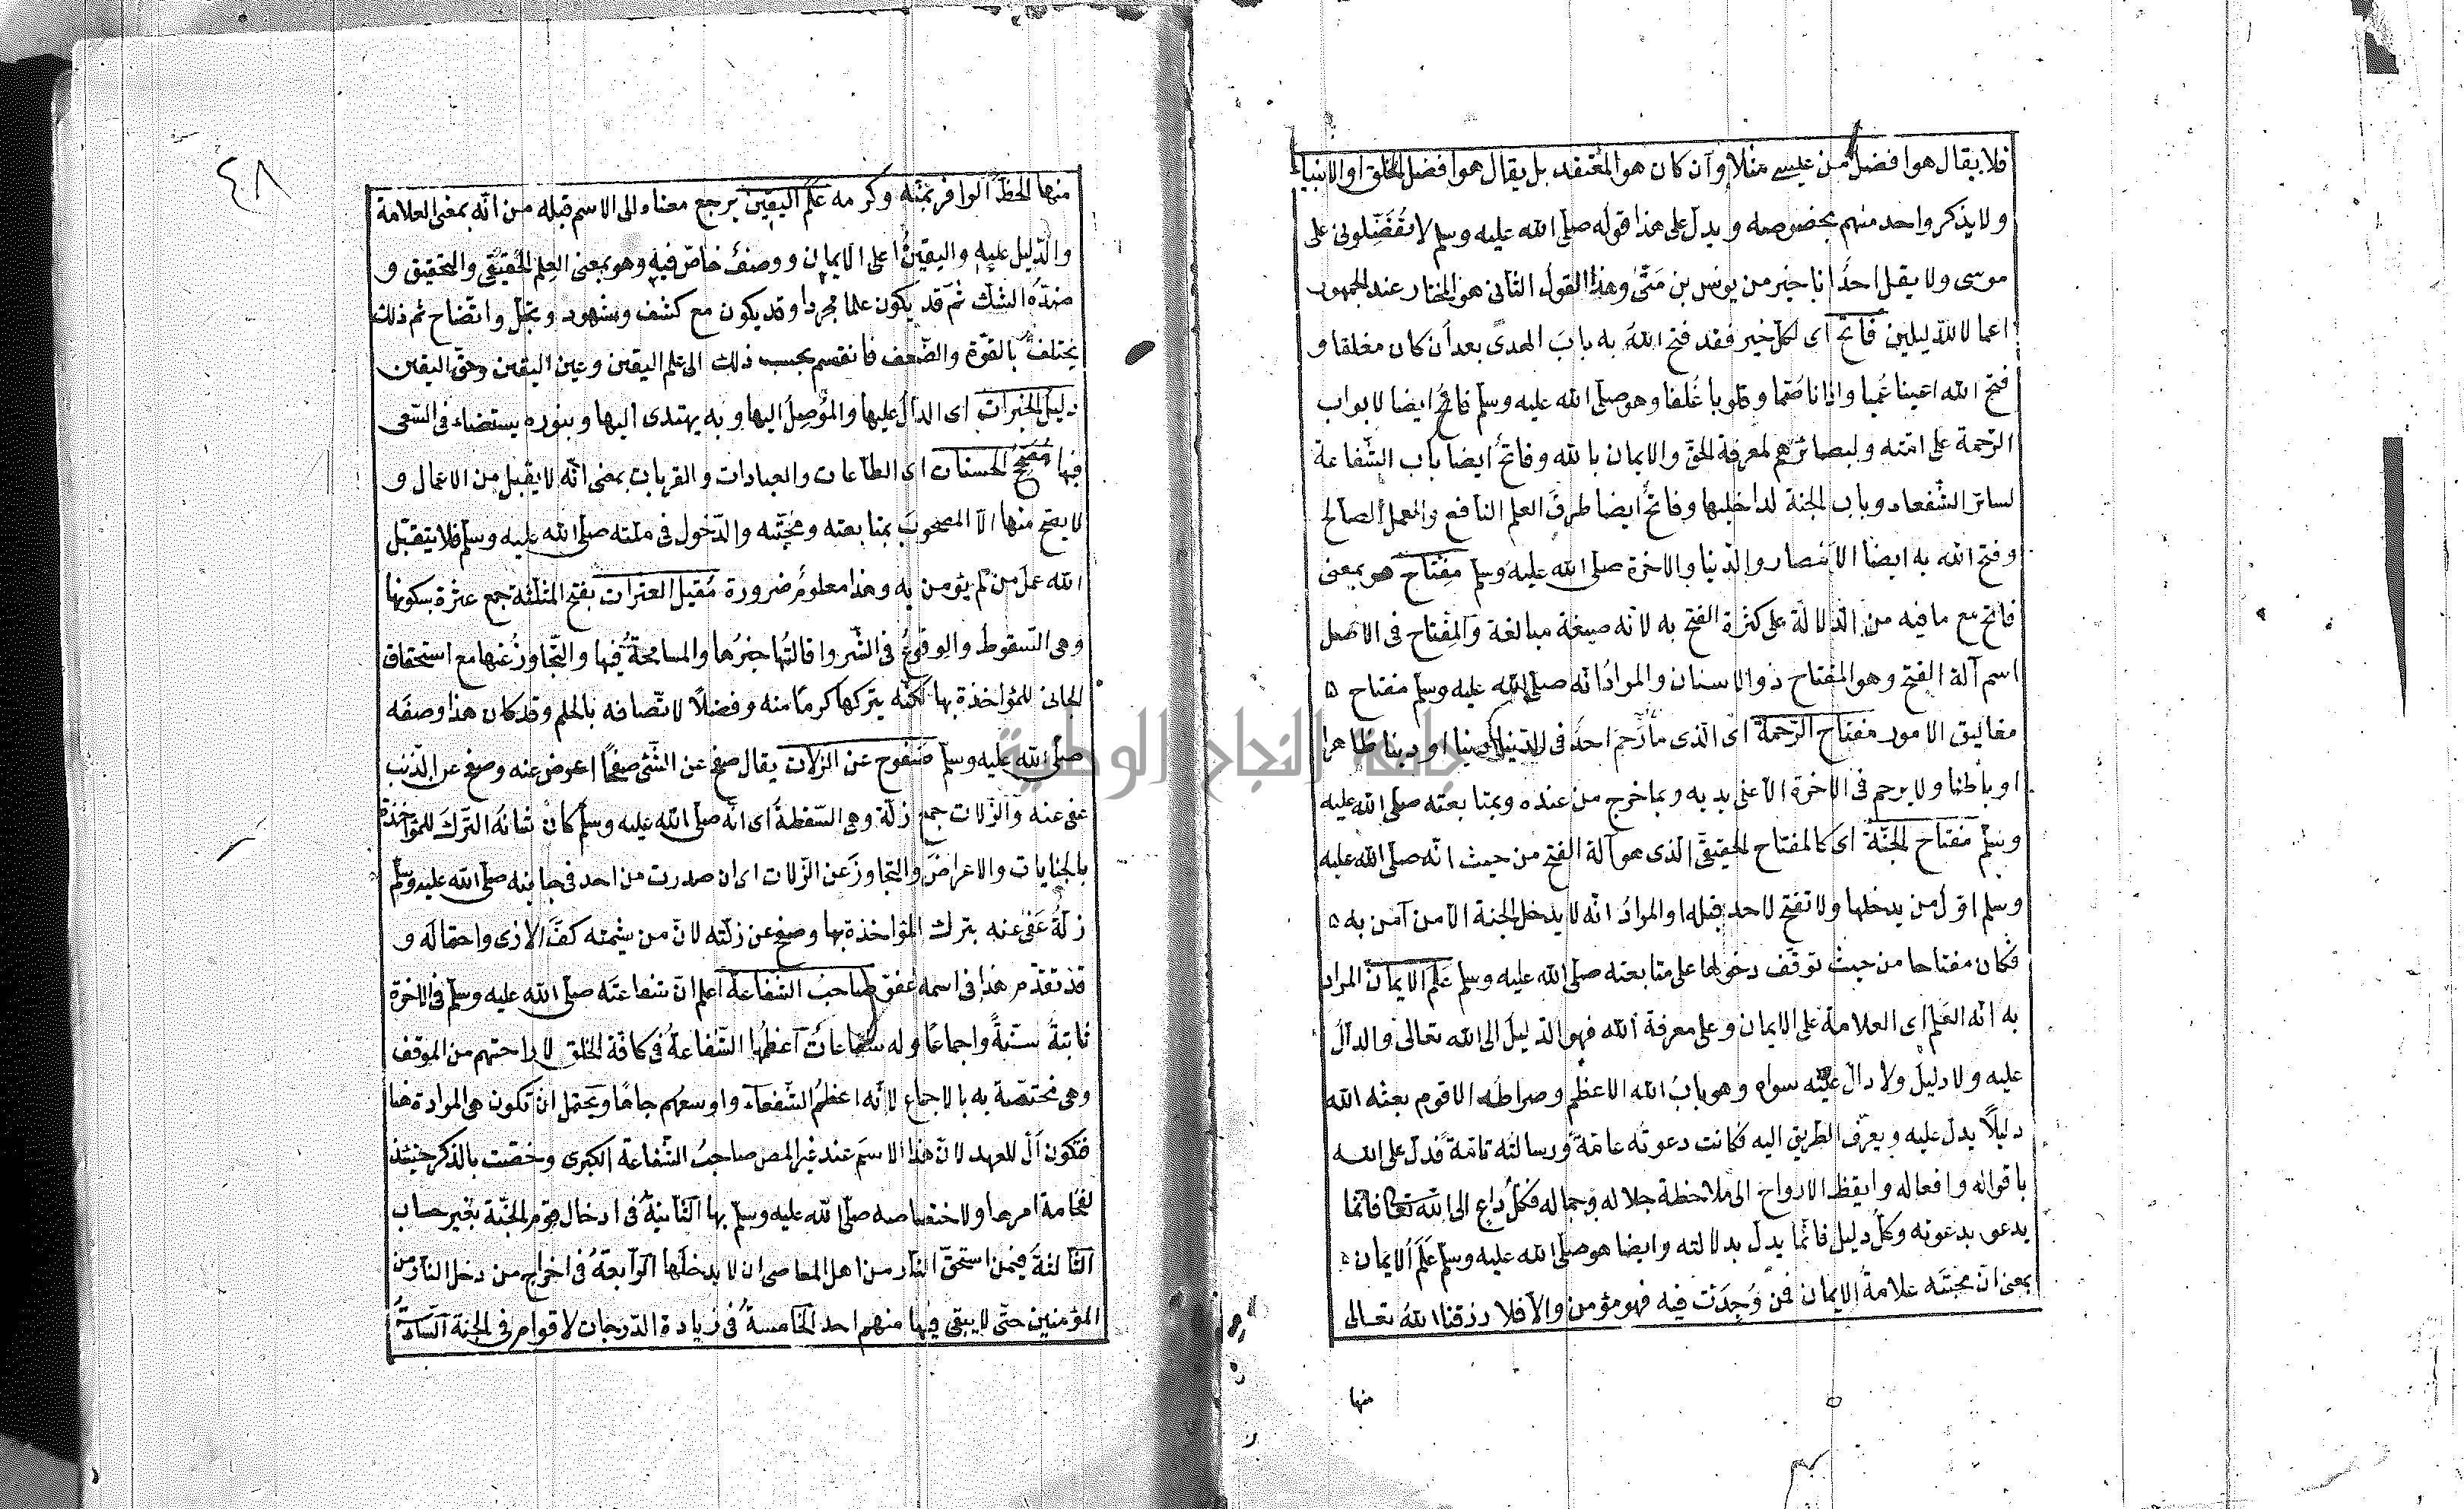 فلا يقال هو افضل من عيسى مثلا وان كان هو المعتقد بل يقال هو افضل الخلق او الانبياء
ولا يذكر واحد منهم بخصوصه ويدل على هذا قوله صلى الله عليه وسلم لا تُفَضِّلوني على
موسى ولا يقل احدٌ انا خير من يونس بن مَتّى وهذا القول الثاني هو المختار عند الجمهور
اعمالا للدليلين فاتح اى لكل خير فقد فتح اللهُ به بابَ الهدىٰ بعد ان كان مغلقا و
فتح الله اعينا عُميا واذانا صُمّا وقلوبا غُلفا وهو صلى الله عليه وسلم فاتحٌ ايضا لابواب
الرّحمة على امّته ولبصائرهم لمعرفة الحقّ والايمان بالله وفاتحٌ ايضا باب الشّفاعة
لسائر الشّفعاء وباب الجنة لداخليها وفاتحٌ ايضا طرقَ العلم النافع والعمل الصالح
وفتح الله به ايضا الامصار والدّنيا والاخرة صلى الله عليه وسلم مِفتاح هو بمعنى
فاتح مع ما فيه من الدلالة على كثرة الفتح به لانه صيغة مبالغة والمِفتاح في الاصل
اسم آلة الفتح وهو المفتاح ذو الاسنان والمرادُ انه صلى الله عليه وسلم مفتاح
مغاليق الامور مفتاح الرّحمة اى الّذى ما رُحم احدٌ في الدّنيا دنيا او دينا ظاهرا
او باطنا ولا يرحم في الاخرة الّا على يديه وبما خرج من عنده وبمتابعته صلى الله عليه
وسلم مفتاح الجنّة اى كالمفتاح الحقيقى الّذى هو آلة الفتح من حيث انّه صلى الله عليه
وسلم اوّل من يدخلها ولا تفتح لاحد قبله او المرادُ انّه لا يدخل الجنة الّا من آمن به
فكان مفتاحا من حيث توقّف دخولها على متابعته صلى الله عليه وسلم عَلَم الايمان المراد
به انّه العَلَم اى العلامة على الايمان وعلى معرفة الله فهو الدّليل الى الله تعالى والدالّ
عليه ولا دليل ولا دالّ عليه سواه وهو بابُ الله الاعظم وصراطه الاقوم بعثه الله
دليلاً يدل عليه ويعرّف الطريق اليه فكانت دعوتُه عامّةً ورسالتُه تامّةً فدلّ على الله
باقواله وافعاله وايقظ الارواح الى ملاحظة جلاله وجماله فكلُّ داعٍ الى الله تعالى فانّما
يدعو بدعوته وكلّ دليل فانّما يدلّ بدلالته وايضا هو صلى الله عليه وسلم عَلَم الايمان
بمعنى انّ محبّته علامةُ الايمان فمن وُجدَت فيه فهو مؤمن والّا فلا رزقنا اللهُ تعالى
منها
٤٨
منها الحظّ الوافر بمنّه وكرمه علم اليقين يرجع معناه الى الاسم قبله من انّه بمعنى العلامة
والدّليل عليه واليقينُ اعلى الايمان ووصفٌ خاصّ فيه وهو بمعنى العِلم الحقيقى والتحقيق و
ضدّه الشكّ ثم قد يكون علما مجردا وقد يكون مع كشف وشهود وتجلّ واتّضاح ثم ذلك
يختلف بالقوّة والضّعف فانقسم بحسب ذلك الى علم اليقين وعين اليقين وحقّ اليقين
دليل الخيرات اى الدالّ عليها والمُوصِل اليها وبه يهتدى اليها وبنوره يستضاء في السّعى
فيها مُصحِّح الحسنات اى الطّاعات والعبادات والقربات بمعنى انّه لا يقبل من الاعمال و
لا يصحّ منها الّا المصحوبَ بمتابعته ومحبّته والدّخول في ملّته صلى الله عليه وسلم فلا يتقبّل
الله عمل من لم يؤمن به وهذا معلومٌ ضرورة مُقيل العثرات بفتح المثلّثة جمع عثرة بسكونها
وهى السّقوط والوقوعُ في الشّر واقالتُها جبرُها والمسامحةُ فيها والتّجاوزُ عنها مع استحقاق
الجانى للمؤاخذة بها لكنّه يتركها كرمًا منه وفضلاً لاتّصافه بالحلم وقد كان هذا وصفَه
صلى الله عليه وسلم صَفوح عن الزلّات يقال صفح عن الشّئ صفحًا اعرض عنه وصفح عن الذّنب
عفى عنه والزّلات جمع زلّة وهى السّقطة اى انّه صلى الله عليه وسلم كان شانُه التركَ للمؤاخذة
بالجنايات والاعراضَ والتجاوزَ عن الزّلات اى ان صدرت من احد في جانبه صلى الله عليه وسلم
زلّةٌ عَفى عنه بترك المؤاخذة بها وصفح عن زلّته لانّ من شيمته كفَّ الاذى واحتمالَه و
قد تقدّم هذا في اسمه عفوّ صاحبُ الشّفاعة اعلم انّ شفاعتَه صلى الله عليه وسلم في الاخرة
ثابتةٌ سنّةً واجماعًا وله شفاعاتٌ اعظمُها الشّفاعةُ في كافّة الخلق لاراحتهم من الموقف
وهى مختصّة به بالاجماع لانّه اعظمُ الشّفعاء واوسعُهم جاهًا ويحتمل ان تكون هى المرادة هنا
فتكون أل للعهد لانّ هذا الاسمَ عند غير المص صاحبُ الشّفاعة الكبرى وخصّت بالذكر حينئذ
لفخامة امرها ولاختصاصه صلى الله عليه وسلم بها الثّانيةُ في ادخال قوم الجنّة بغير حساب
الثّالثةُ فيمن استحقّ النّار من اهل المعاصى ان لا يدخلها الرّابعةُ في اخراج من دخل النار من
المؤمنين حتّى لا يبقى فيها منهم احد الخامسةُ في زيادة الدّرجات لاقوام في الجنة السّادسةُ
جامعة النجاح الوطنية